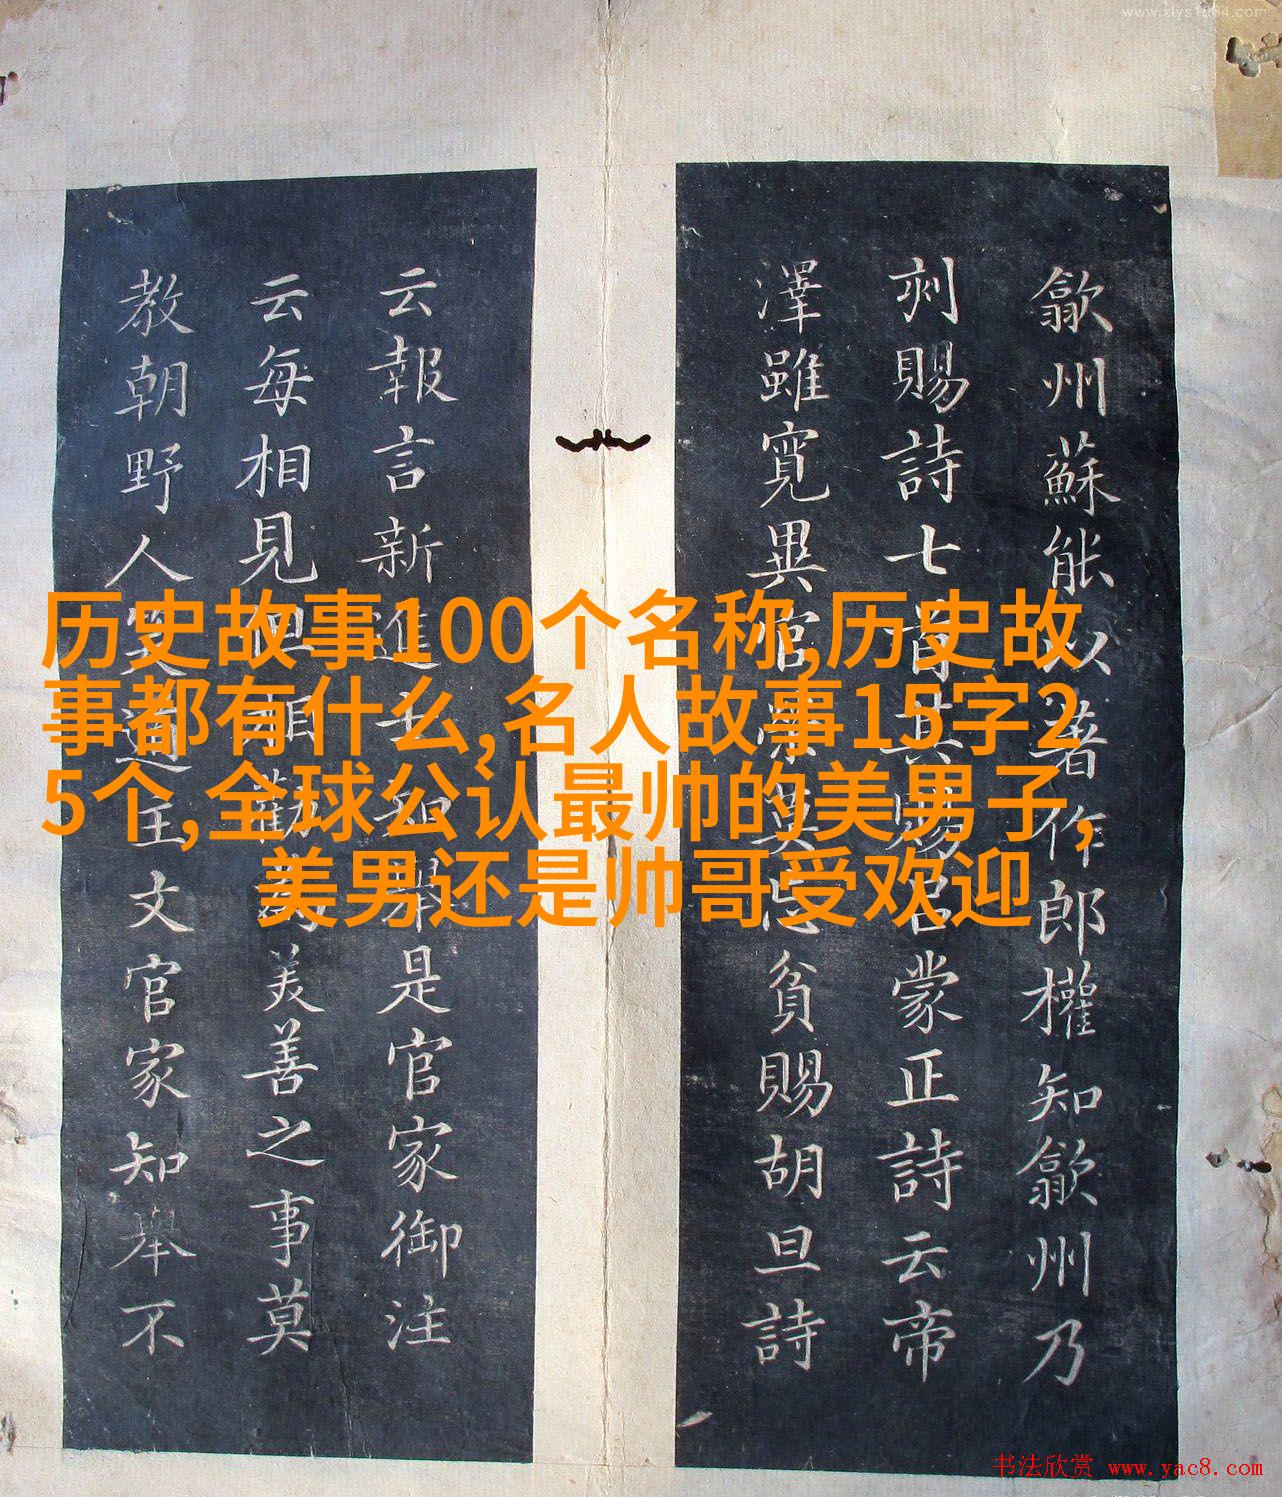 www.xlys1904.com
歙州蘇能以著作郎權知歙州乃
刻賜詩七首其賜呂蒙正詩云帝
澤雖寬異
貧賜胡旦詩
云報言新進士知舉是官家御注
云每相見但相勸為美善之事莫
教朝野人笑
文官家知舉不
历史故事100个名称,历史故
事都有什么,名人故事15字2
5个,全球公认最帅的美男子,
美男还是帅哥受欢迎
书法欣赏 www.yac8.com